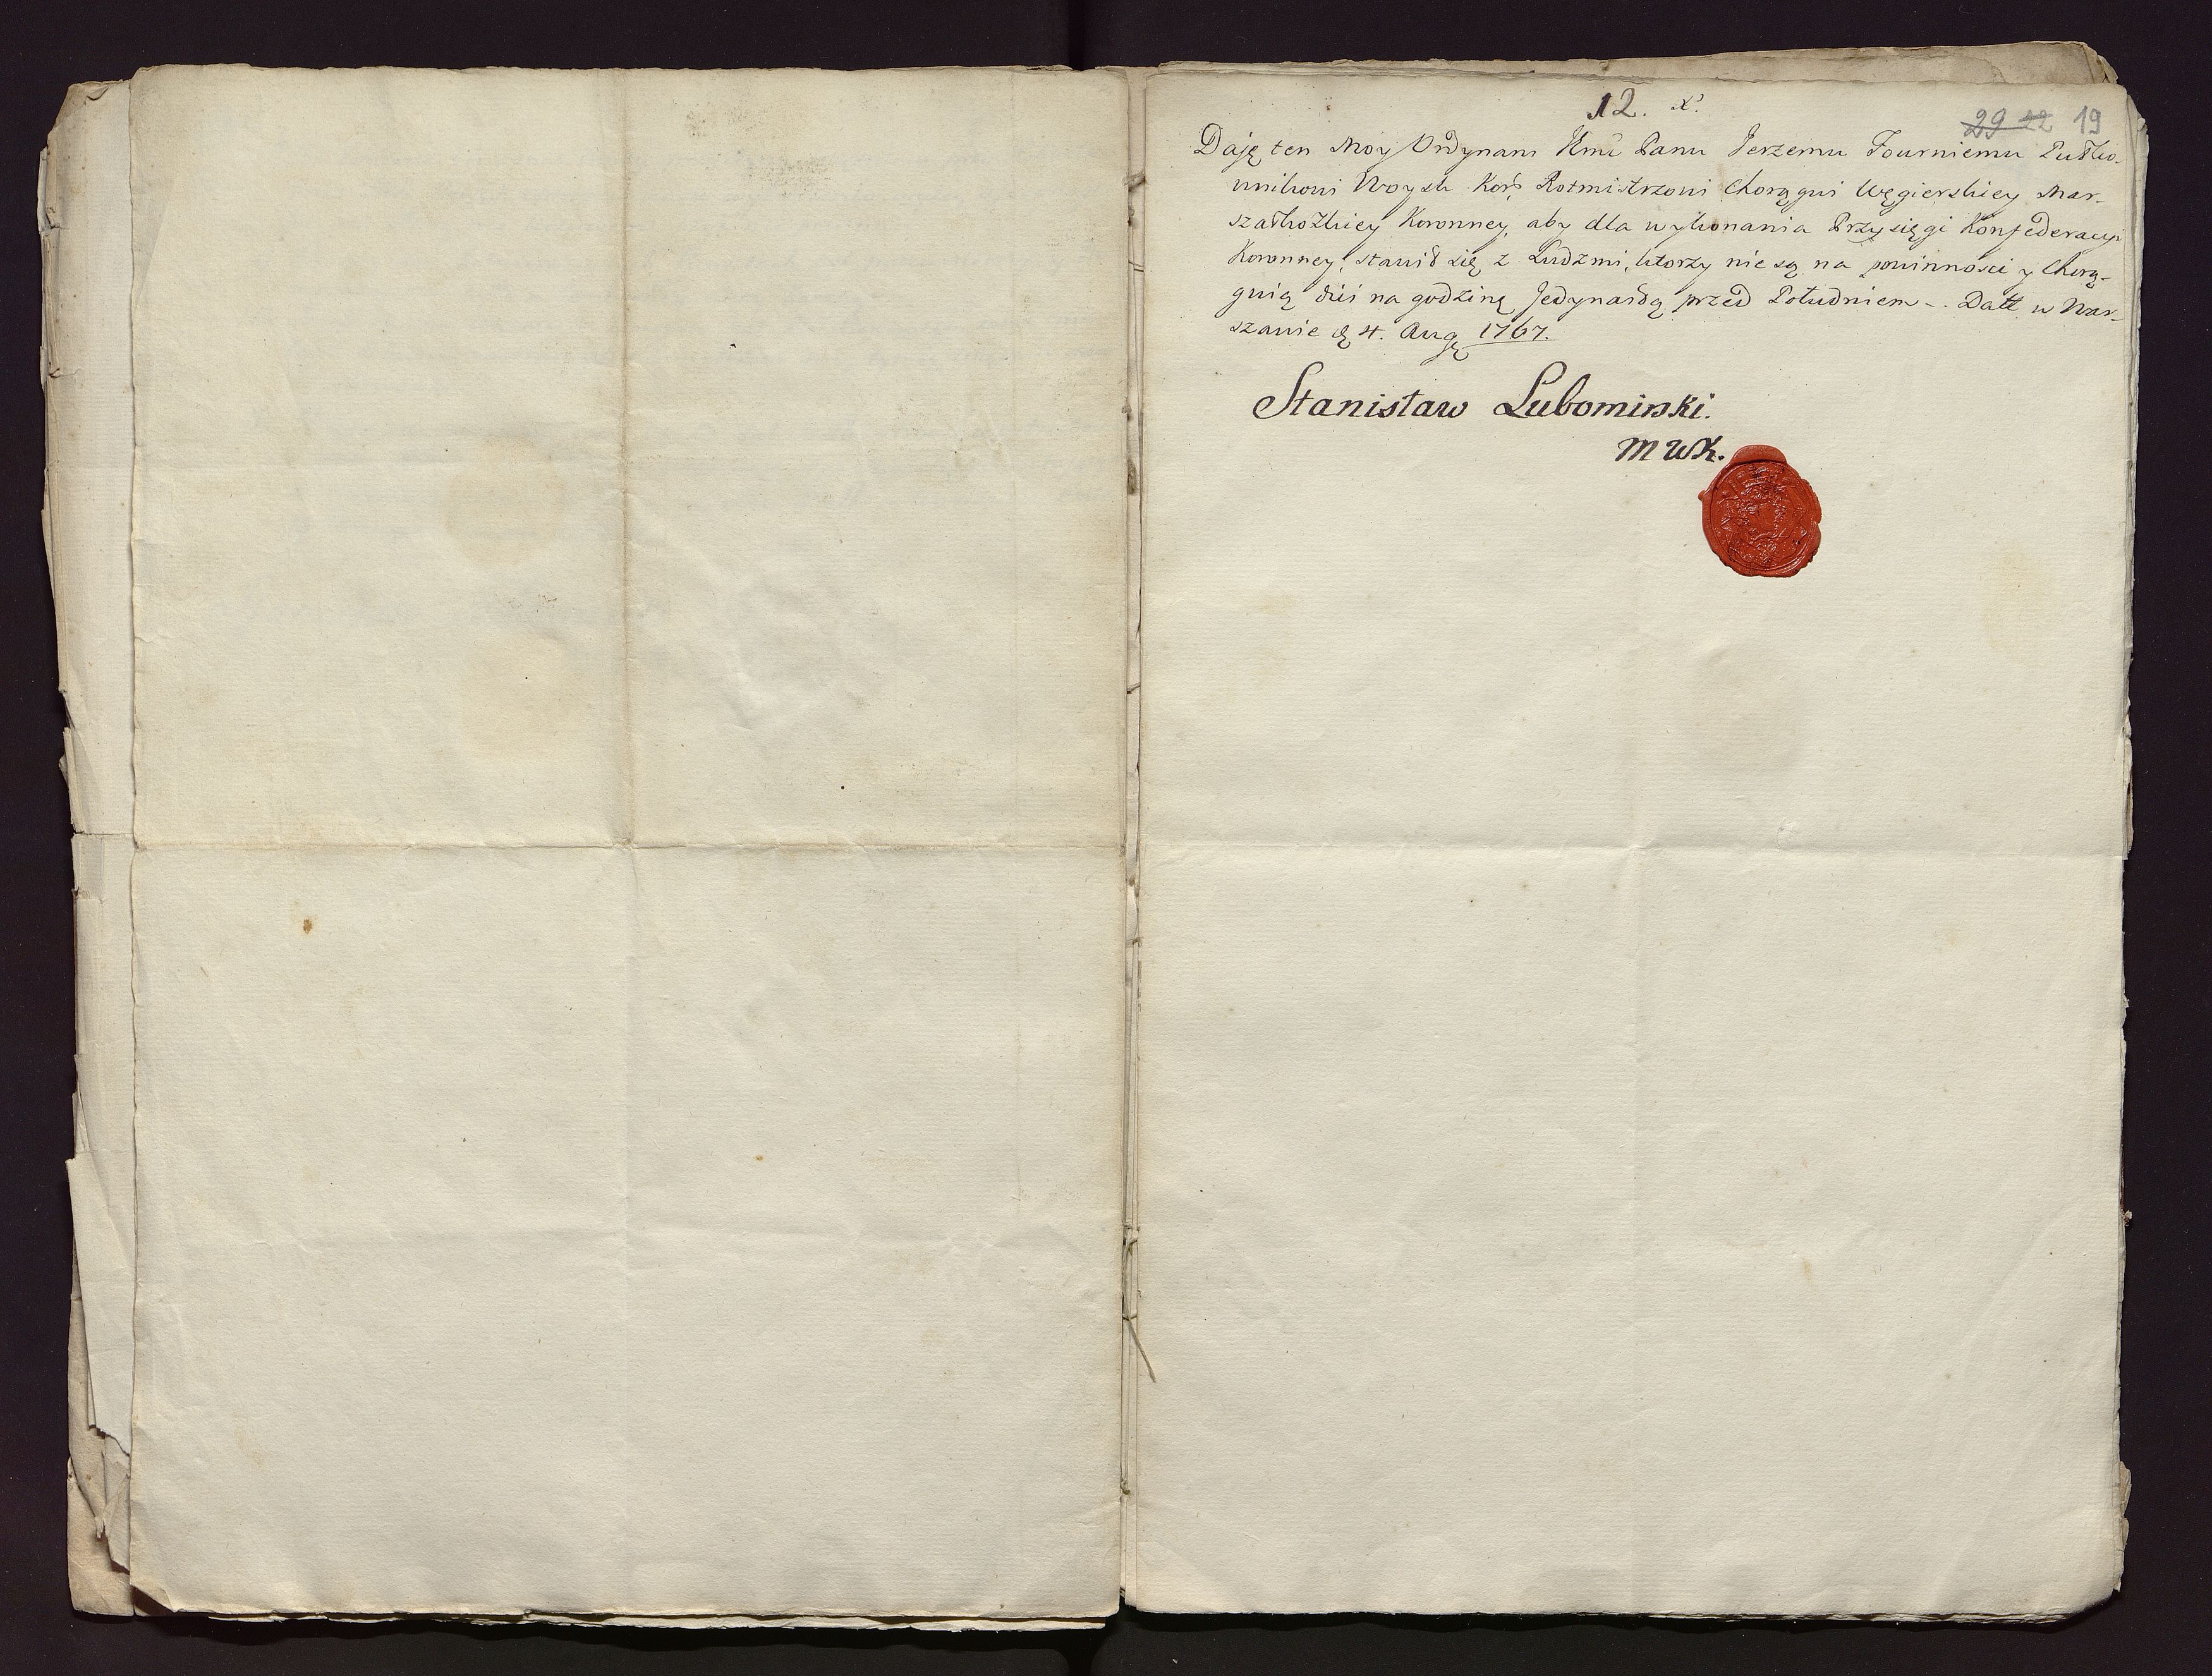 12. x.
29 22 19
Daję ten Moy Ordynans Jmć Panu Jerzemu Fourniemu Pułko-
wnikowi Woysk Kor: Rotmistrzowi Chorągwi Węgierskiey Mar-
szałkowskiey Koronney, aby dla wykonania Przysięgi Konfederacyi
Koronney, stawił się z Ludzmi, ktorzy nie są na powinności y Chorą-
gwią dziś na godzinę Jedynastą przed Południem -. Datt w War-
szawie d. 4. Aug 1767.
Stanisław Lubomirski.
MWK.